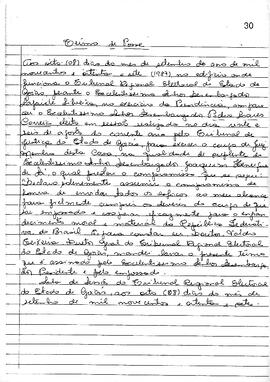 30
Termo de Posse
Aos oito (08) dias do mês de setembro do ano de mil
novecentos e oitenta e sete (1987) no edifício onde
funciona o Tribunal Regional Eleitoral do Estado de
Goiás, perante o Excelentíssimo Senhor Desembargador
Ribeiro, no exercício da Presidência, compare
ceu o Excelentíssimo Senhor Desembargador Pedro Soares
Correia eleito em sessão realizada no dia vinte e
seis de agosto do corrente ano pelo Tribunal de
Justiça do Estado de Goiás, para exercer o cargo de
desta Casa, na qualidade de suplente do
Excelentíssimo Senhor Desembargador Joaquim
de Sá, o qual prestou o compromisso que se segue:
"Declaro solenemente assumir o compromisso de
de envidar todos os esforços ao meu alcance
para fielmente cumprir os deveres do cargo de Ju
iz e cooperar eficazmente para o engran
decimento moral e material da República Federati
va do Brasil. E para constar eu Doutor Valdir
Teixeira Diretor Geral do Tribunal Regional Eleitoral
do Estado de Goiás, mandei lavrar o presente Termo
que é assinado pelo Excelentíssimo Senhor Desembarga
dor Presidente e pelo empossado.
Sala de Sessão do Tribunal Regional Eleitoral
do Estado de Goiás, aos oito (08) dias do mês de
setembro de mil novecentos e oitenta e sete.